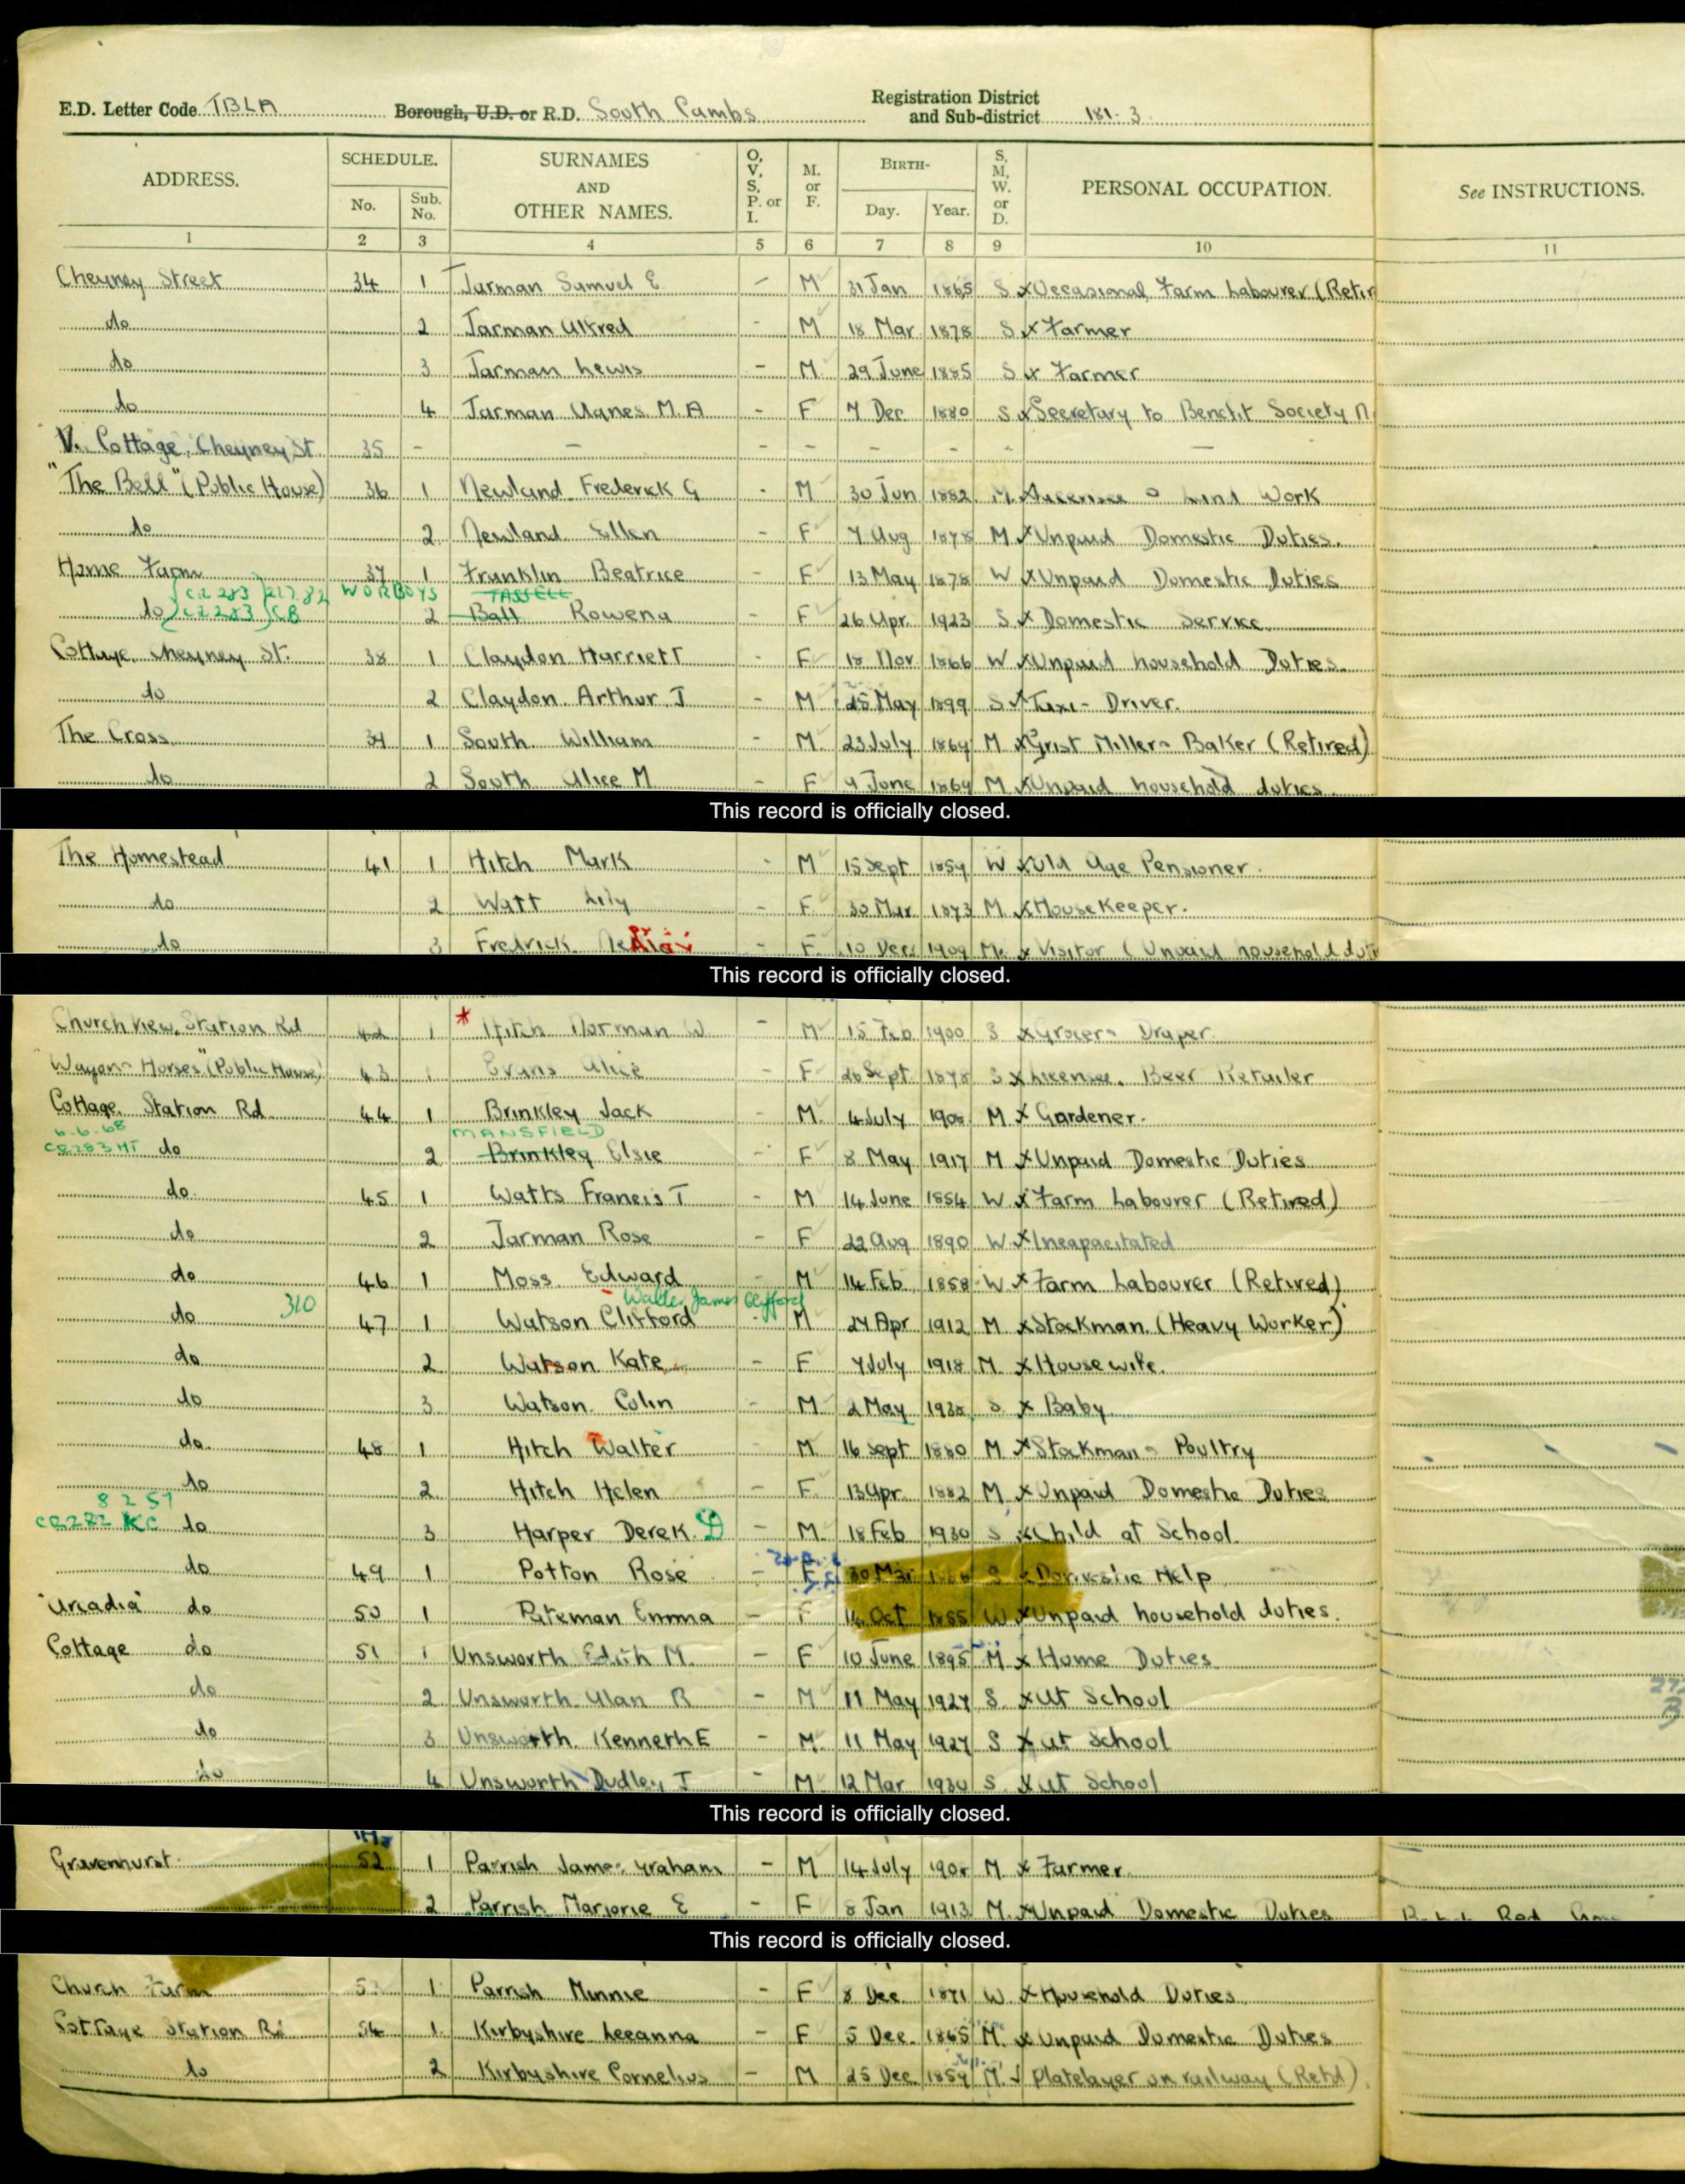 E.D. Letter Code TBLA Borough, U.D. or R.D. South Cambs Registration District and Sub-district 181. 3
ADDRESS. SCHEDULE. No. Sub. No. SURNAMES AND OTHER NAMES. O, V, S, P. or I. M. or F. BIRTH- Day. Year. S, M, W. or D. PERSONAL OCCUPATION. See INSTRUCTIONS.
1 2 3 4 5 6 7 8 9 10 11
Cheyney Street 34 1 Jarman Samuel E. - M 31 Jan 1865 S x Occasional Farm Labourer (Retir
do 2 Jarman Alfred - M 18 Mar 1878 S x Farmer
do 3 Jarman Lewis - M 29 June 1885 S x Farmer
do 4 Jarman Agnes M. A - F 7 Dec 1880 S x Secretary to Benefit Society
V. Cottage, Cheyney St. 35 - - - - - - - -
"The Bell" (Public House) 36 1 Newland Frederick G - M 30 Jun 1882 M x Land Work
do 2 Newland Ellen - F 7 Aug 1878 M x Unpaid Domestic Duties.
Home Farm 37 1 Franklin Beatrice - F 13 May 1878 W x Unpaid Domestic Duties
CR 283 WORBOYS TASSELL
do CR 283 CB 2 Ball Rowena F 26 Apr 1923 S x Domestic Service
Cottage, Cheyney St. 38 1 Claydon Harriett - F 18 Nov 1866 W x Unpaid household Duties.
do 2 Claydon Arthur J - M 25 May 1899 S x Taxi-Driver.
The Cross 39 1 South William - M 23 July 1864 M x Grist Miller & Baker (Retired)
do 2 South Alice M - F 9 June 1864 M x Unpaid household duties.
This record is officially closed.
The Homestead 41 1 Hitch Mark - M 15 Sept 1859 W x Old Age Pensioner.
do 2 Watt Lily - F 30 Mar 1873 M x HouseKeeper.
do 3 Fredrick - F 10 Dec 1909 M x Visitor (Unpaid household duti
This record is officially closed.
Church View, Station Rd 42 1 * Hitch Norman W - M 15 Feb 1900 S x Grocer & Draper.
"Wagon & Horses" (Public House) 43 1 Evans Alice - F 26 Sept 1878 S x Licensee. Beer Retailer
Cottage, Station Rd 44 1 Brinkley Jack - M 4 July 1908 M x Gardener.
6.6.68 MANSFIELD
CR283 HT do 2 Brinkley Elsie - F 8 May 1917 M x Unpaid Domestic Duties
do 45 1 Watts Francis T - M 14 June 1854 W x Farm Labourer (Retired)
do 2 Jarman Rose - F 22 Aug 1890 W x Incapacitated
do 46 1 Moss Edward - M 14 Feb 1858 W x Farm Labourer (Retired)
310 Walter James Clifford
do 47 1 Watson Clifford - M 24 Apr 1912 M x Stockman (Heavy Worker)
do 2 Watson Kate - F 7 July 1918 M x Housewife.
do 3 Watson Colin - M 2 May 1938 S x Baby
do 48 1 Hitch Walter - M 16 Sept 1880 M x Stockman - Poultry
do 2 Hitch Helen - F 13 Apr 1882 M x Unpaid Domestic Duties
8 2 57
CR282 KC do 3 Harper Derek. - M 18 Feb 1930 S x Child at School
do 49 1 Potton Rose - F 30 Mar S x Domestic Help
"Arcadia" do 50 1 Pateman Emma - F 14 Oct 1855 W x Unpaid household duties.
Cottage do 51 1 Unsworth Edith M. - F 10 June 1895 M x Home Duties
do 2 Unsworth Alan R - M 11 May 1927 S x At School
do 3 Unsworth Kenneth E - M 11 May 1927 S x at School
do 4 Unsworth Dudley J - M 12 Mar 1930 S x at School
This record is officially closed.
Gravenhurst 52 1 Parrish James Graham - M 14 July 1908 M x Farmer
2 Parrish Marjorie E - F 8 Jan 1913 M x Unpaid Domestic Duties Red
This record is officially closed.
Church Farm 53 1 Parrish Minnie - F 8 Dec 1871 W x Household Duties
Cottage Station Rd 54 1 Kirbyshire Leeanna - F 5 Dec 1865 M x Unpaid Domestic Duties
do 2 Kirbyshire Cornelius - M 25 Dec 1859 M Platelayer on railway (Retd)